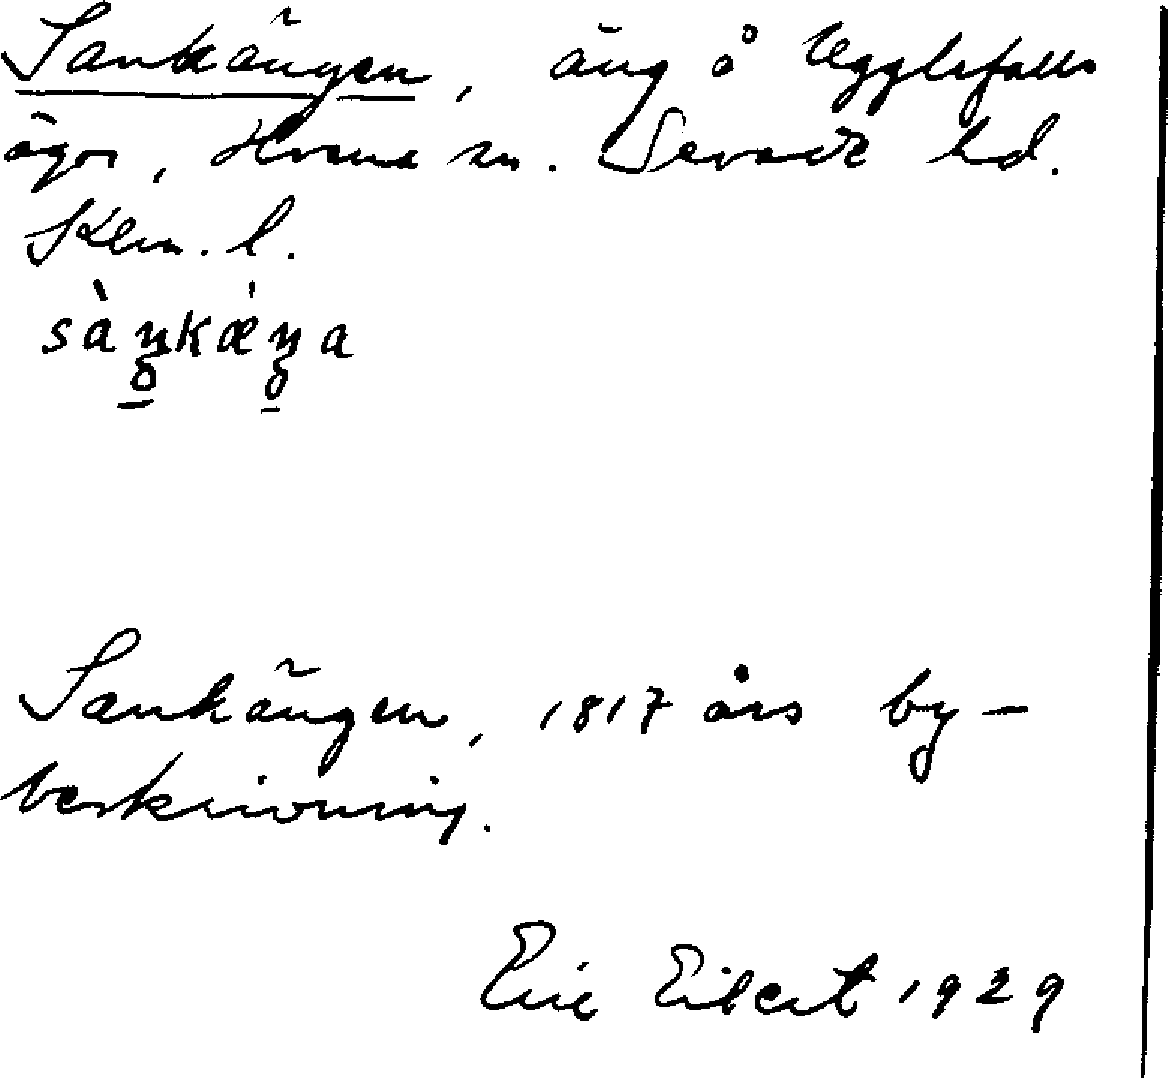 Sankängen, äng å Ugglefalls
ägor, Horns sn. Sevede hd.
KLm. l.
sàŋkǽŋa
Sankängen, 1817 års by-
beskrivning.
Eric Eilert 1929